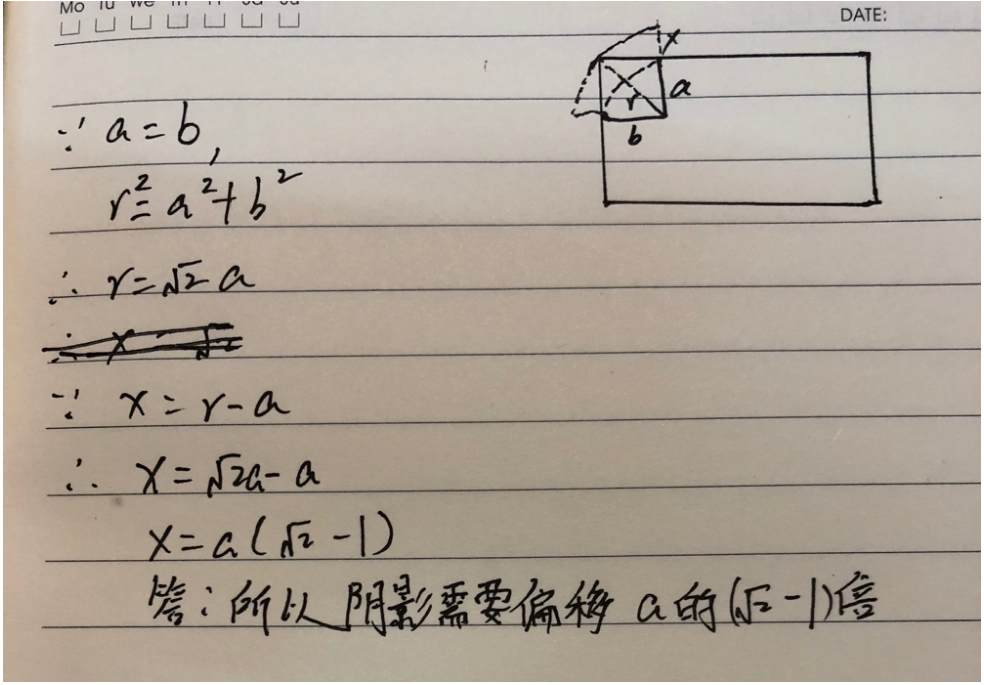 Mo Tu We Th Fr Sa Su
DATE:
x
a
r
b
∵ a = b,
r² = a² + b²
∴ r = √2 a
∵ x = r - a
∴ x = √2a - a
x = a(√2 - 1)
答：所以阴影需要偏移 a 的(√2 - 1)倍